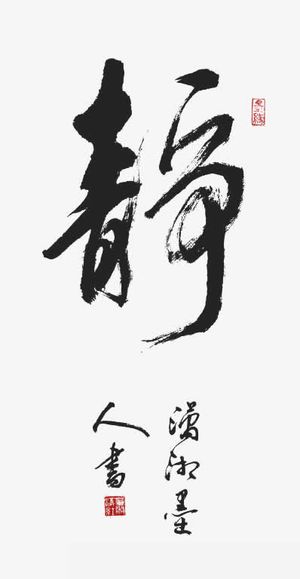 靜
潇湘墨
人書